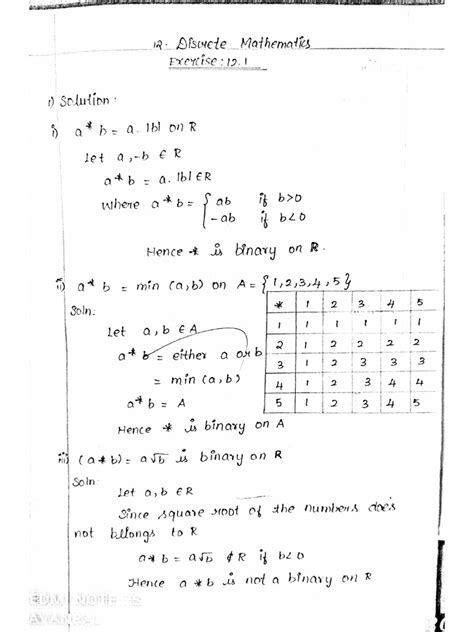 12. Discrete Mathematics
Exercise: 12.1
1) Solution:
i) a * b = a.|b| on R
Let a, -b ∈ R
a * b = a.|b| ∈ R
Where a * b = { ab if b>0
-ab if b<0
Hence * is binary on R.
ii) a * b = min (a,b) on A = {1,2,3,4,5}
Soln:
* 1 2 3 4 5
1 1 1 1 1 1
2 1 2 2 2 2
3 1 2 3 3 3
4 1 2 3 4 4
5 1 2 3 4 5
Let a, b ∈ A
a * b = either a or b
= min (a,b)
a * b = A
Hence * is binary on A
iii) (a * b) = a√b is binary on R
Soln:
Let a, b ∈ R
Since square root of the numbers does
not bllongs to R
a * b = a√b ∉ R if b<0
Hence a * b is not a binary on R